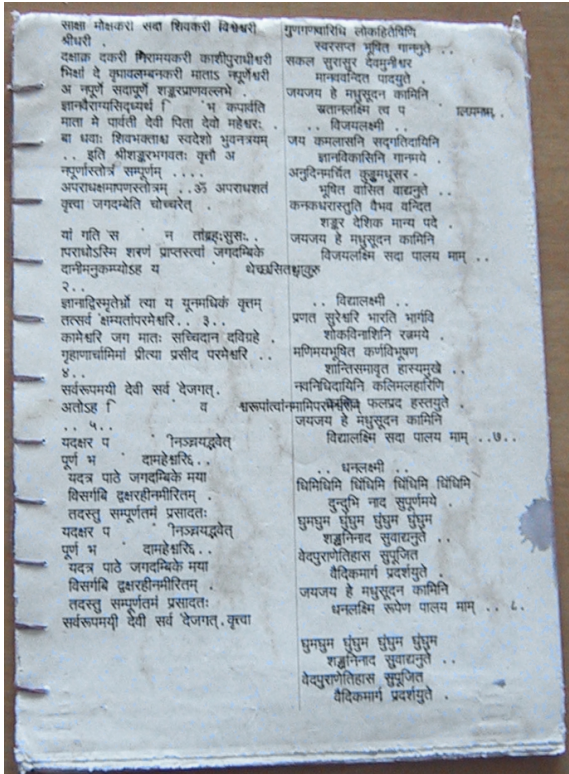 साक्षा मोक्षकरी सदा शिवकरी विश्वेश्वरी
श्रीधरी .
दक्षाक्र दकरी निरामयकरी काशीपुराधीश्वरी
भिक्षां दे कृपावलम्बनकरी माताऽ नपूर्णेश्वरी
अ नपूर्णे सदापूर्णे शङ्करप्राणवल्लभे .
ज्ञानवैराग्यसिद्ध्यर्थ भ कपार्वति
माता मे पार्वती देवी पिता देवो महेश्वरः .
बा धवाः शिवभक्ताश्च स्वदेशो भुवनत्रयम्
.. इति श्रीशङ्करभगवतः कृतौ अ
नपूर्णास्तोत्रं सम्पूर्णम् ....
अपराधक्षमापणस्तोत्रम् ..ॐ अपराधशतं
कृत्त्वा जगदम्बेति चोच्चरेत् .
यां गति स न तांब्रहःसुसः..
पराधोऽस्मि शरणं प्राप्तस्त्वां जगदम्बिके
दानीमनुकम्प्योऽह य
२..
ज्ञानाद्विस्मृतेर्भ्रो त्या य यूनमधिकं कृतम्
तत्सर्व क्षम्यतांपरमेश्वरि.. ३..
कामेश्वरि जग मातः सच्चिदान दविग्रहे .
गृहाणार्चामिमां प्रीत्या प्रसीद परमेश्वरि ..
४..
सर्वरूपमयी देवी सर्व देजगत्.
अतोऽह व
.. ५..
यदक्षर प
पूर्ण भ दामहेश्वरि६..
यदत्र पाठे जगदम्बिके मया
विसर्गबि द्वक्षरहीनमीरितम् .
तदस्तु सम्पूर्णतमं प्रसादतः
यदक्षर प
पूर्ण भ दामहेश्वरि६..
यदत्र पाठे जगदम्बिके मया
विसर्गबि द्वक्षरहीनमीरितम् .
तदस्तु सम्पूर्णतमं प्रसादतः
सर्वरूपमयी देवी सर्व देजगत्.कृत्त्वा
गुणगणवारिधि लोकहितैषिणि
स्वरसप्त भूषित गाननुते ..
सकल सुरासुर देवमुनीश्वर
मानववन्दित पादयुते .
जयजय हे मधुसूदन कामिनि
त्व प
.. विजयलक्ष्मी ..
जय कमलासनि सद्गतिदायिनि
ज्ञानविकासिनि गानमये .
अनुदिनमर्चित कुङ्कुमधूसर-
भूषित वासित वाद्यनुते ..
कनकधरास्तुति वैभव वन्दित
शङ्कर देशिक मान्य पदे .
जयजय हे मधुसूदन कामिनि
विजयलक्ष्मि सदा पालय माम् ..
.. विद्यालक्ष्मी ..
प्रणत सुरेश्वरि भारति भार्गवि
शोकविनाशिनि रत्नमये .
मणिमयभूषित कर्णविभूषण
शान्तिसमावृत हास्यमुखे ..
नवनिधिदायिनि कलिमलहारिणि
फलप्रद हस्तयुते .
जयजय हे मधुसूदन कामिनि
विद्यालक्ष्मि सदा पालय माम् ..७..
.. धनलक्ष्मी ..
धिमिधिमि धिंधिमि धिंधिमि धिंधिमि
दुन्दुभि नाद सुपूर्णमये .
घुमघुम घुंघुम घुंघुम घुंघुम
शङ्खनिनाद सुवाद्यनुते ..
वेदपुराणेतिहास सुपूजित
वैदिकमार्ग प्रदर्शयुते .
जयजय हे मधुसूदन कामिनि
धनलक्ष्मि रूपेण पालय माम् .. ८.
घुमघुम घुंघुम घुंघुम घुंघुम
शङ्खनिनाद सुवाद्यनुते ..
वेदपुराणेतिहास सुपूजित
वैदिकमार्ग प्रदर्शयुते .